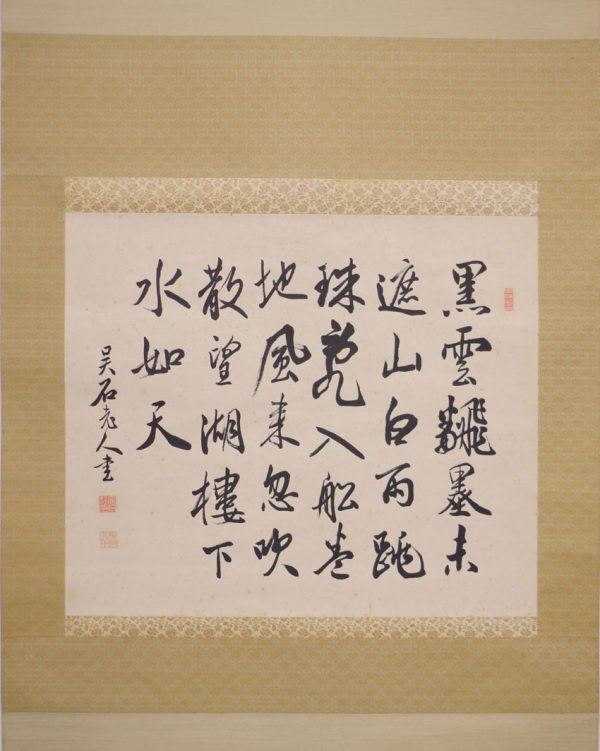 黒雲飜墨未
遮山白雨跳
珠亂入船巻
地風来忽吹
散望湖樓下
水如天
吴石老人書